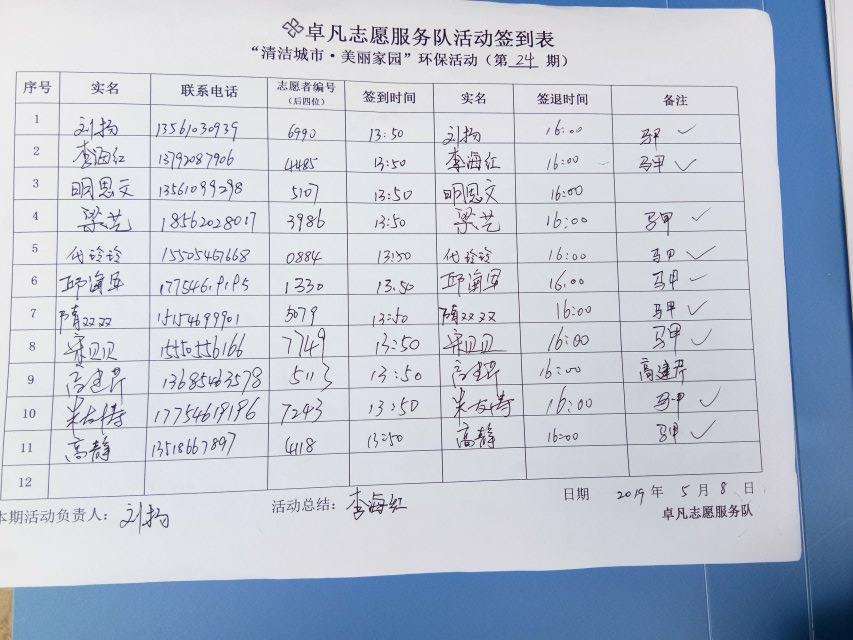 卓凡志愿服务队活动签到表
“清洁城市·美丽家园”环保活动（第 24 期）
序号 实名 联系电话 志愿者编号（后四位） 签到时间 实名 签退时间 备注
1 刘扬 13561030939 6990 13:50 刘扬 16:00 马甲 ✓
2 李海红 13792087906 4485 13:50 李海红 16:00 马甲 ✓
3 明恩文 13561099298 5107 13:50 明恩文 16:00
4 梁艺 18562028017 3986 13:50 梁艺 16:00 马甲 ✓
5 代玲玲 15505457668 0884 13:50 代玲玲 16:00 马甲 ✓
6 邱海军 17754619195 1330 13.50 邱海军 16.00 马甲 ✓
7 隋双双 15154699901 5079 13:50 隋双双 16:00 马甲 ✓
8 宋贝贝 15550556166 7749 13:50 宋贝贝 16:00 马甲 ✓
9 高建芹 13685463578 5113 13:50 高建芹 16:00 高建芹
10 17754619196 7243 13:50 16:00 马甲 ✓
11 高静 13518667897 4418 13:50 高静 16:00 马甲 ✓
12
本期活动负责人：刘扬 活动总结：李海红 日期 2019 年 5 月 8 日
卓凡志愿服务队